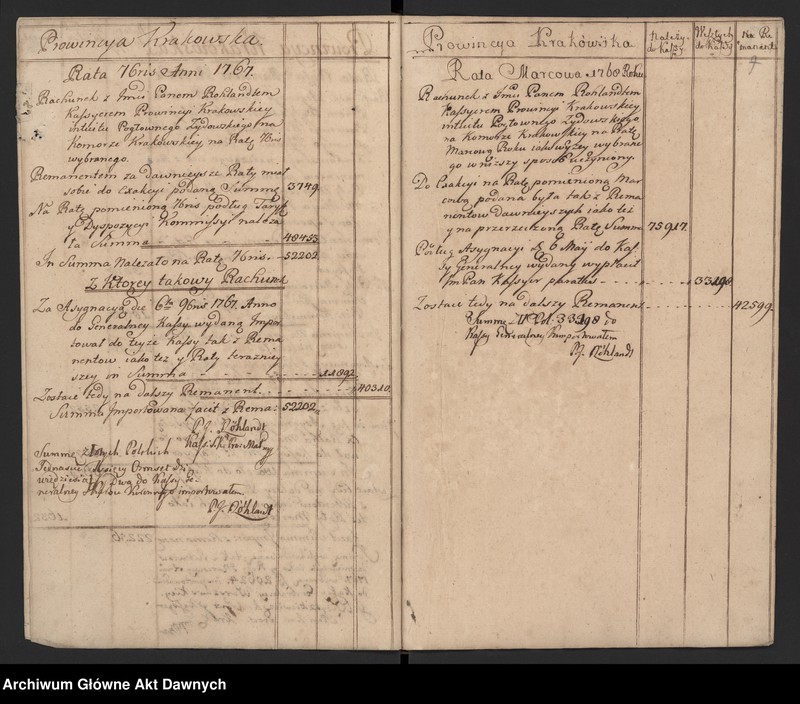 Prowincya Krakowska.
Rata 7bris Anni 1767.
Rachunek z Jmć Panem Rohlandtem
Kassyerem Prowincyi Krakowskiey
intuitu Pogłownego Zydowskiego na
Komorze Krakowskiey na Ratę 7bris
wybranego.
Remanentem za dawnieysze Raty miał
sobie do Exakcyi podaną Summę 3749.
Na Ratę pomienioną 7bris podług Taryff
y Dyspozycyi Kommissyi należa
ła Summa 48453.
In Summa Należało na Ratę 7bris. 52202
Z Ktorey takowy Rachunek
Za Asygnacyą die 6ta 9bris 1767. Anno
do Generalney Kassy wydaną Impor
tował do teyże Kassy tak z Rema
nentow iako też y Raty teraźniey
szey in Summa 11892.
Zostaie tedy na dalszy Remanent 40310.
Summa Importowana facit z Rema: 52202.
P.J. Röhlandt
Summę złotych Polskich
do Kassy Ge
neralney importowałem
P.J. Röhlandt
Prowincya Krakówska
Należy.
do Kassy
Weszłych
do Kassy
Na Re
manent
Rata Marcowa 1768 Roku
Rachunek z Jmć Panem Rohlandtem
Kassyerem Prowincyi Krakowskiey
intuitu Pogłownego Zydowskiego
na Komorze Krakowskiey na Ratę
Marcową Roku iako wyżey wybrane
go w niższy sposob uczyniony.
Do Exakcyi na Ratę pomienioną Mar
cową podana była tak z Rema
nentow Dawnieyszych iako też
y na przerzeczoną Ratę Summa 75917.
Podług Asygnacyi d. 6 Maij do Kas
sy Generalney wydaney wypłacił
Jm Pan Kassyer paratis 33198
Zostaie tedy na dalszy Remanent 42599.
Summę 33198 do
Kassy Generalney Importowałem
P.J. Röhlandt
Archiwum Główne Akt Dawnych